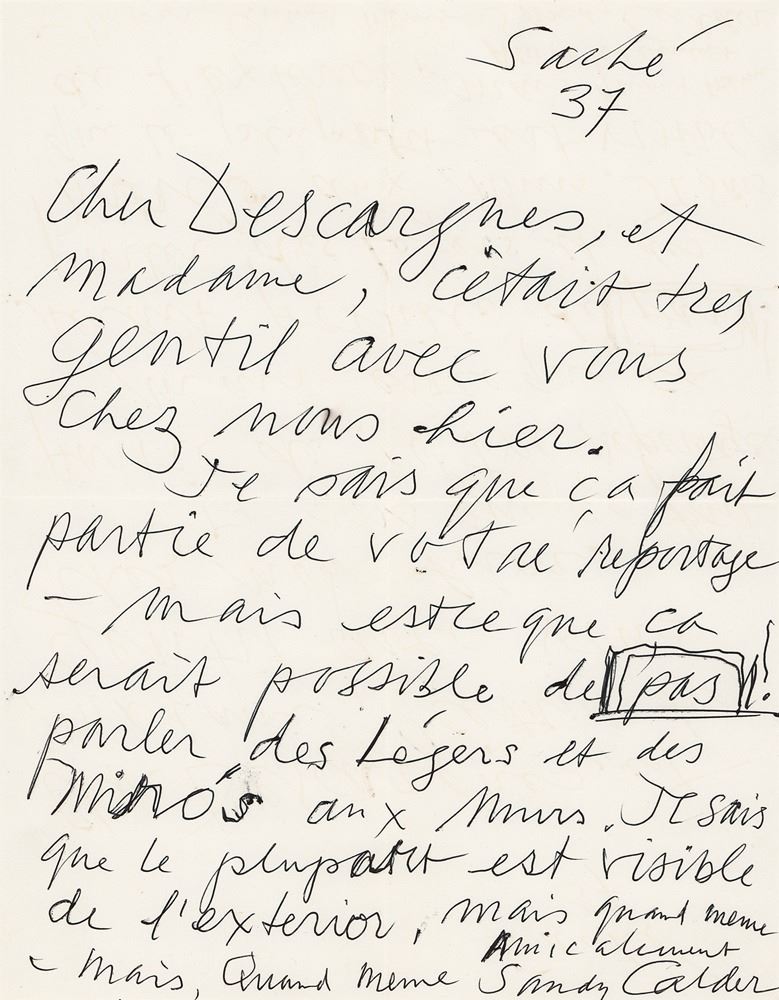 Saché
37
Cher Descargues, et
Madame, c'était tres
gentil avec vous
chez nous hier.
Je sais que ça fait
partie de votre reportage
- mais estceque ça
serait possible de pas!
parler des Légers et des
Miró's aux murs. Je sais
que le plupart est visible
de l'exterior, mais quand meme
- mais, Quand meme
Amicalement
Sandy Calder